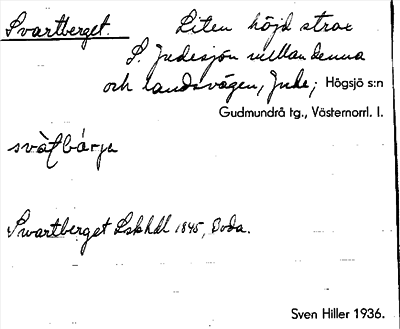 Svartberget. Liten höjd strax
S. Judesjön mellan denna
och landsvägen, Jude; Högsjö s:n
Gudmundrå tg., Västernorrl. l.
Svartberget Lskhdl 1845, Boda.
Sven Hiller 1936.